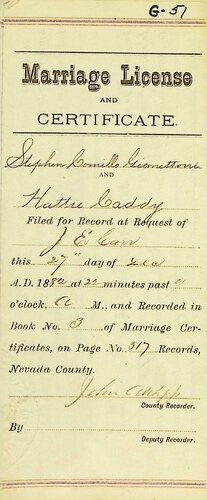 G-51
Marriage License
AND
CERTIFICATE.
Stephen Camillo Gianettoni
AND
Hattie Caddy
Filed for Record at Request of
J E Carr
this 27" day of Dec
A.D. 1882 at 22 minutes past 9
o'clock, A M., and Recorded in
Book No. 3 of Marriage Cer-
tificates, on Page No. 517 Records,
Nevada County.
John
County Recorder.
By
Deputy Recorder.